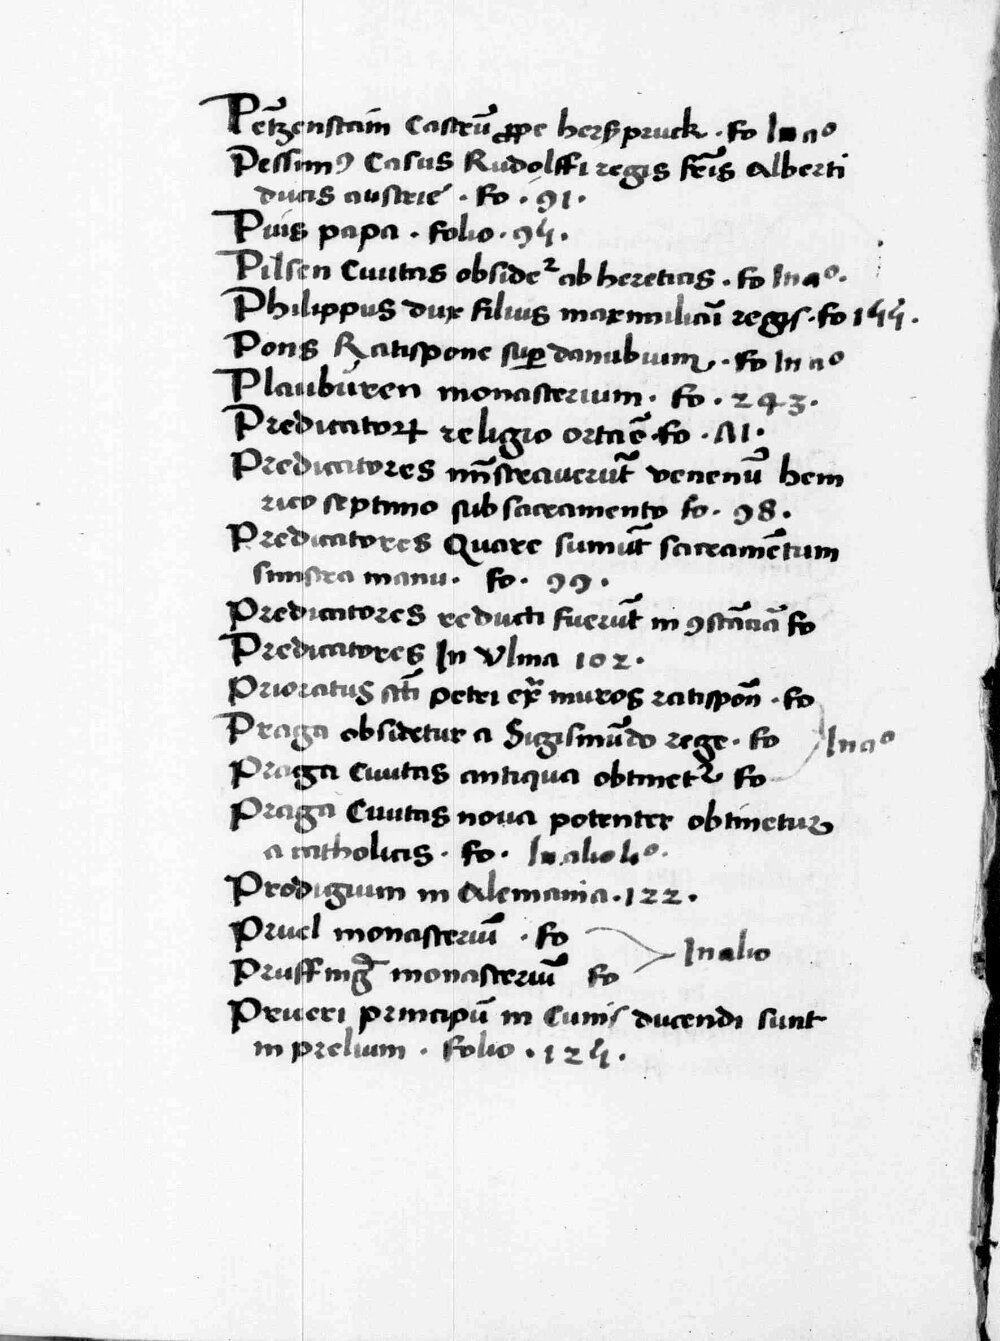 Petzenstain Castrū ꝓpe herspruck · fo In aº
Pessimꝰ Casus Rudolffi regis fr̄is Alberti
ducis austrie · fo · 91 ·
Pius papa · folio · 95 ·
Pilsen Civitas obsidet᷑ ab hereticis · fo In aº ·
Philippus dux filius maximiliāi regis · fo 155 ·
Pons Ratispone suꝑ danubium · fo In aº
Plauburen monasterium · fo · 243 ·
Predicatoꝝ religio orta ē · fo · 81 ·
Predicatores mīstraverūt venenū hein
rico septimo sub sacramento fo · 98 ·
Predicatores Quare sumūt sacramētum
sinistra manu · fo · 99 ·
Predicatores reducti fuerūt in ꝯstācia fo
Predicatores In Vlma 102 ·
Prioratus sctī petri ex̄ muros ratispoñ · fo
Praga obsidetur a Sigismūdo rege · fo In aº
Praga Civitas antiqua obtinet᷑ fo
Praga Civitas nova potenter obtinetur
a catholicis · fo · In alio liº ·
Prodigium in Alemania · 122 ·
Pruel monasteriū · fo In alio
Pruffing̃ monasteriū fo
Prueri principū in Cunis ducendi sunt
in prelium · folio · 125 ·